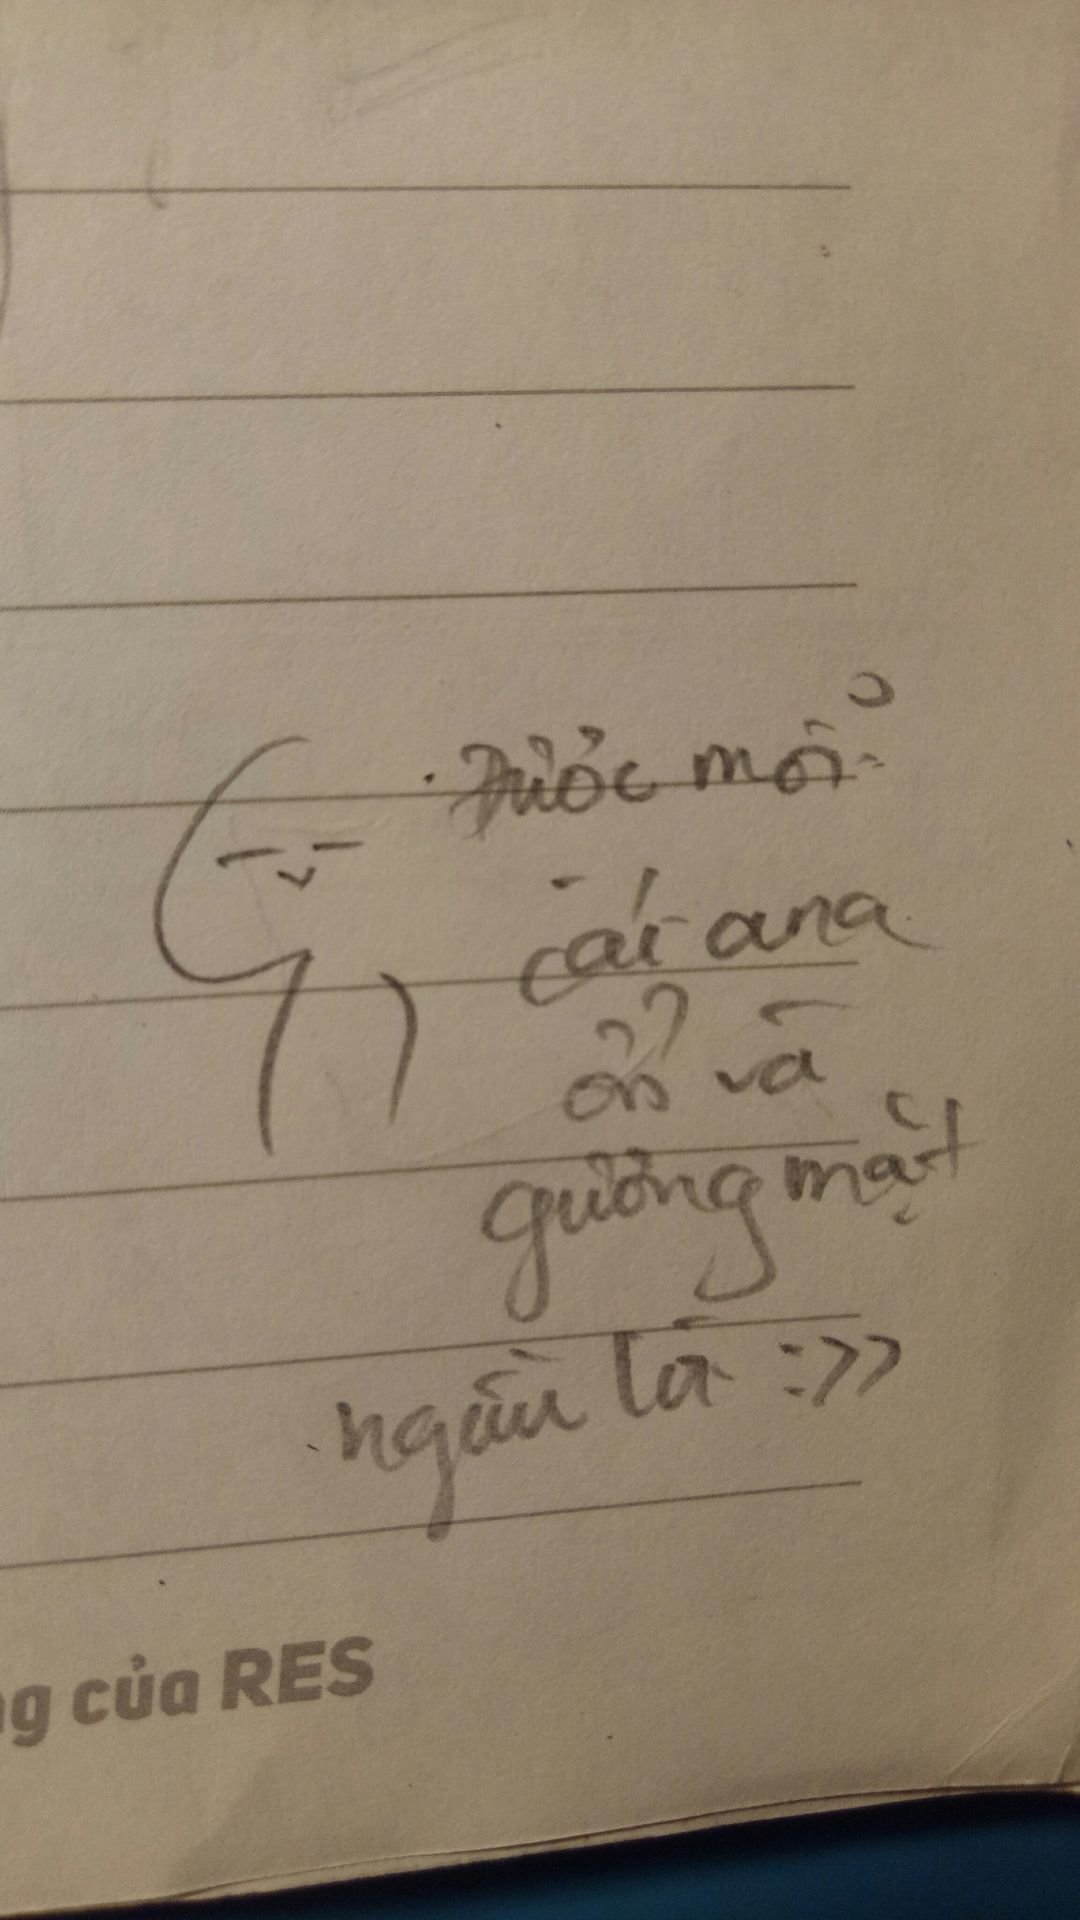 Được mỗi
cái ana
ổn và
gương mặt
người là :>>
ng của RES